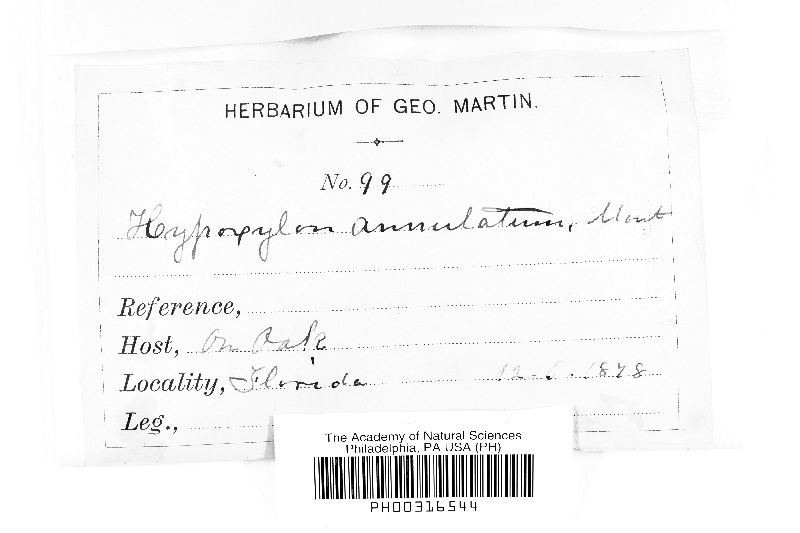 HERBARIUM OF GEO. MARTIN.
No. 99
Hypoxylon annulatum, Mont
Reference,
Host, On Oak
Locality, Florida 12-6-1878
Leg.,
The Academy of Natural Sciences
Philadelphia, PA USA (PH)
PH00316544